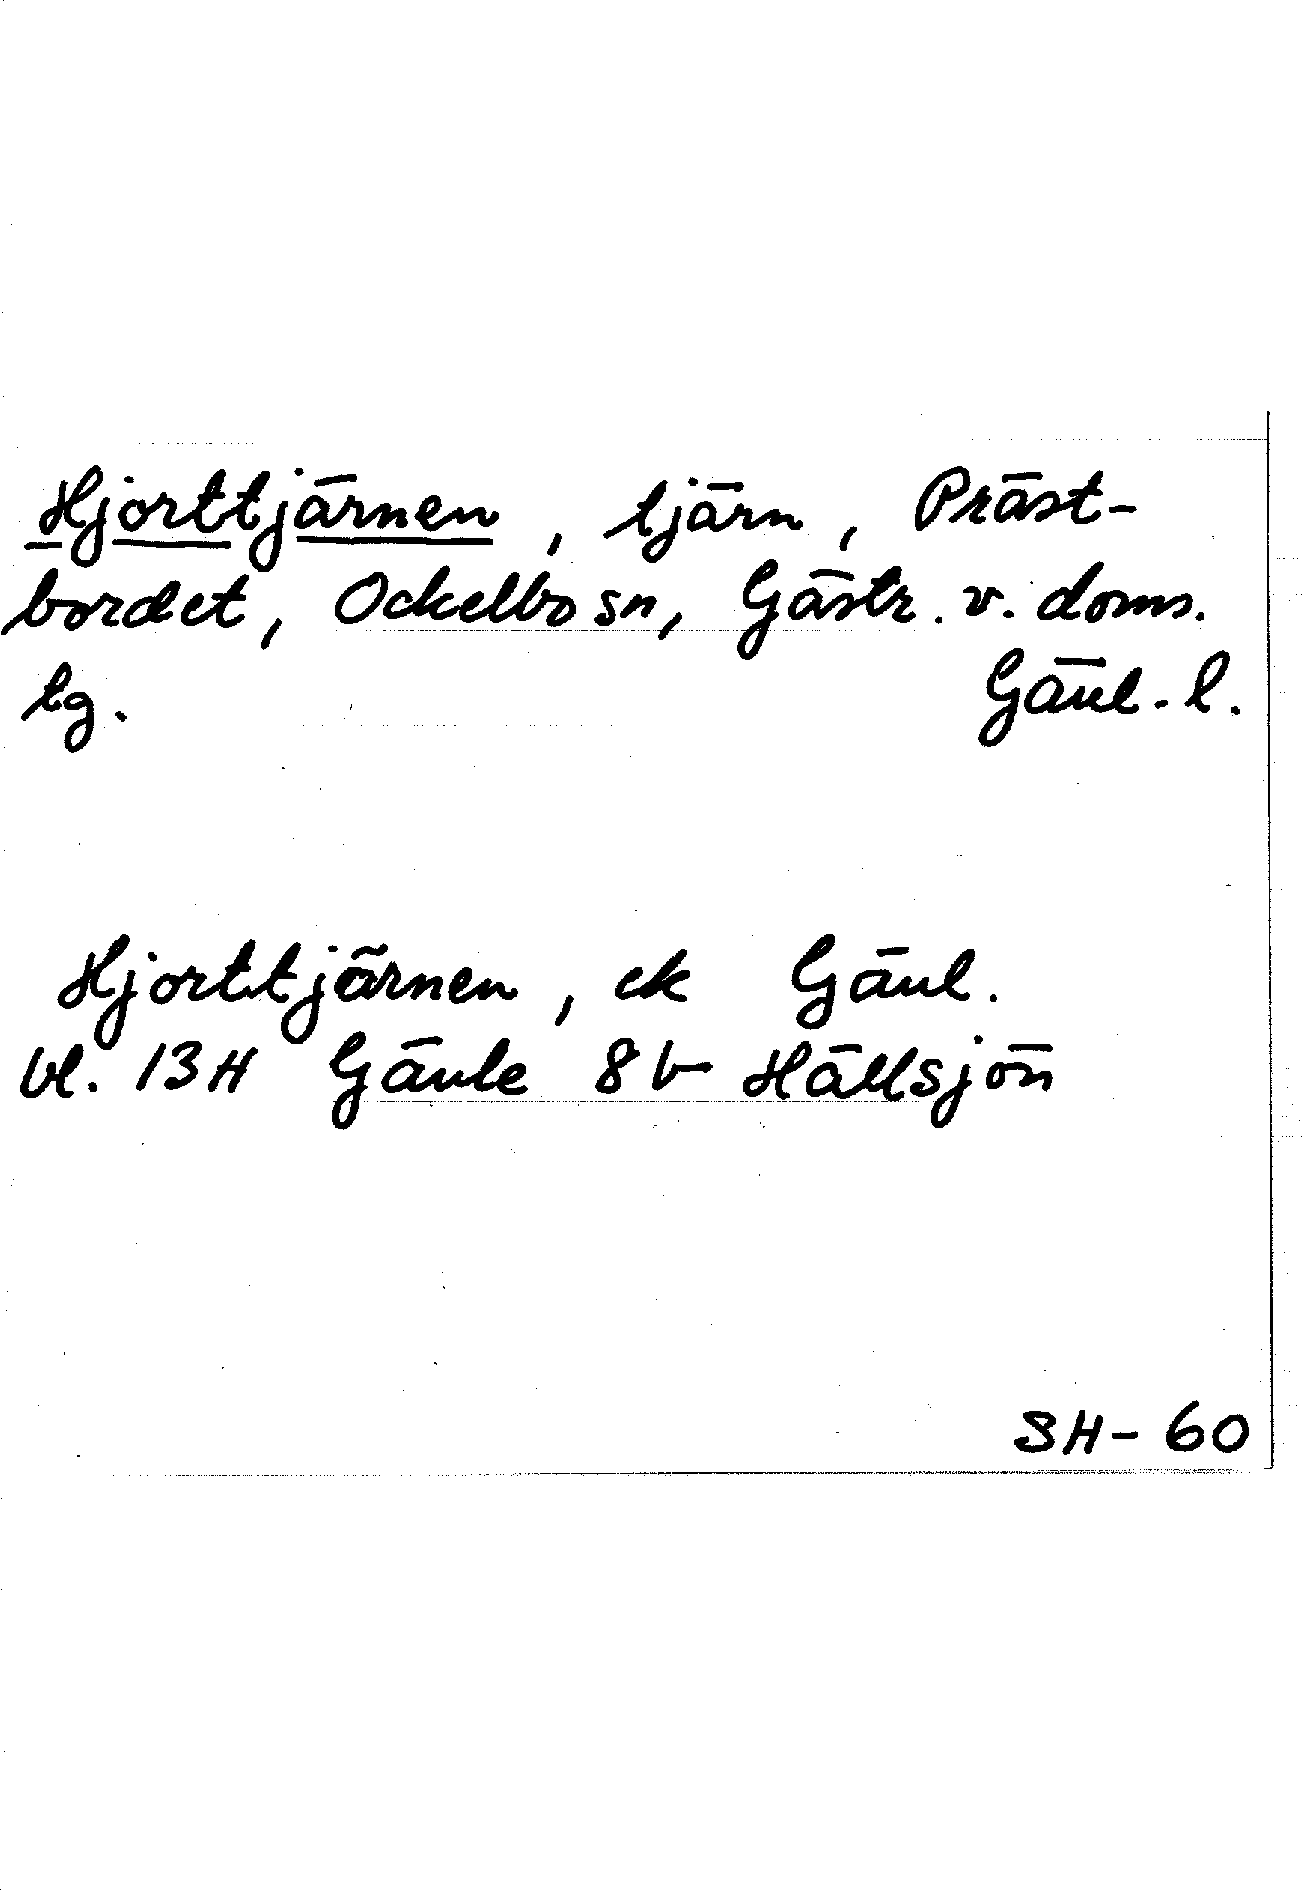 Hjorttjärnen, tjärn, Präst-
bordet, Ockelbo sn, Gästr. v. doms.
lg. Gävl. l.
Hjorttjärnen, ek Gävl.
bl. 13H Gävle 8b Hällsjön
SH-60